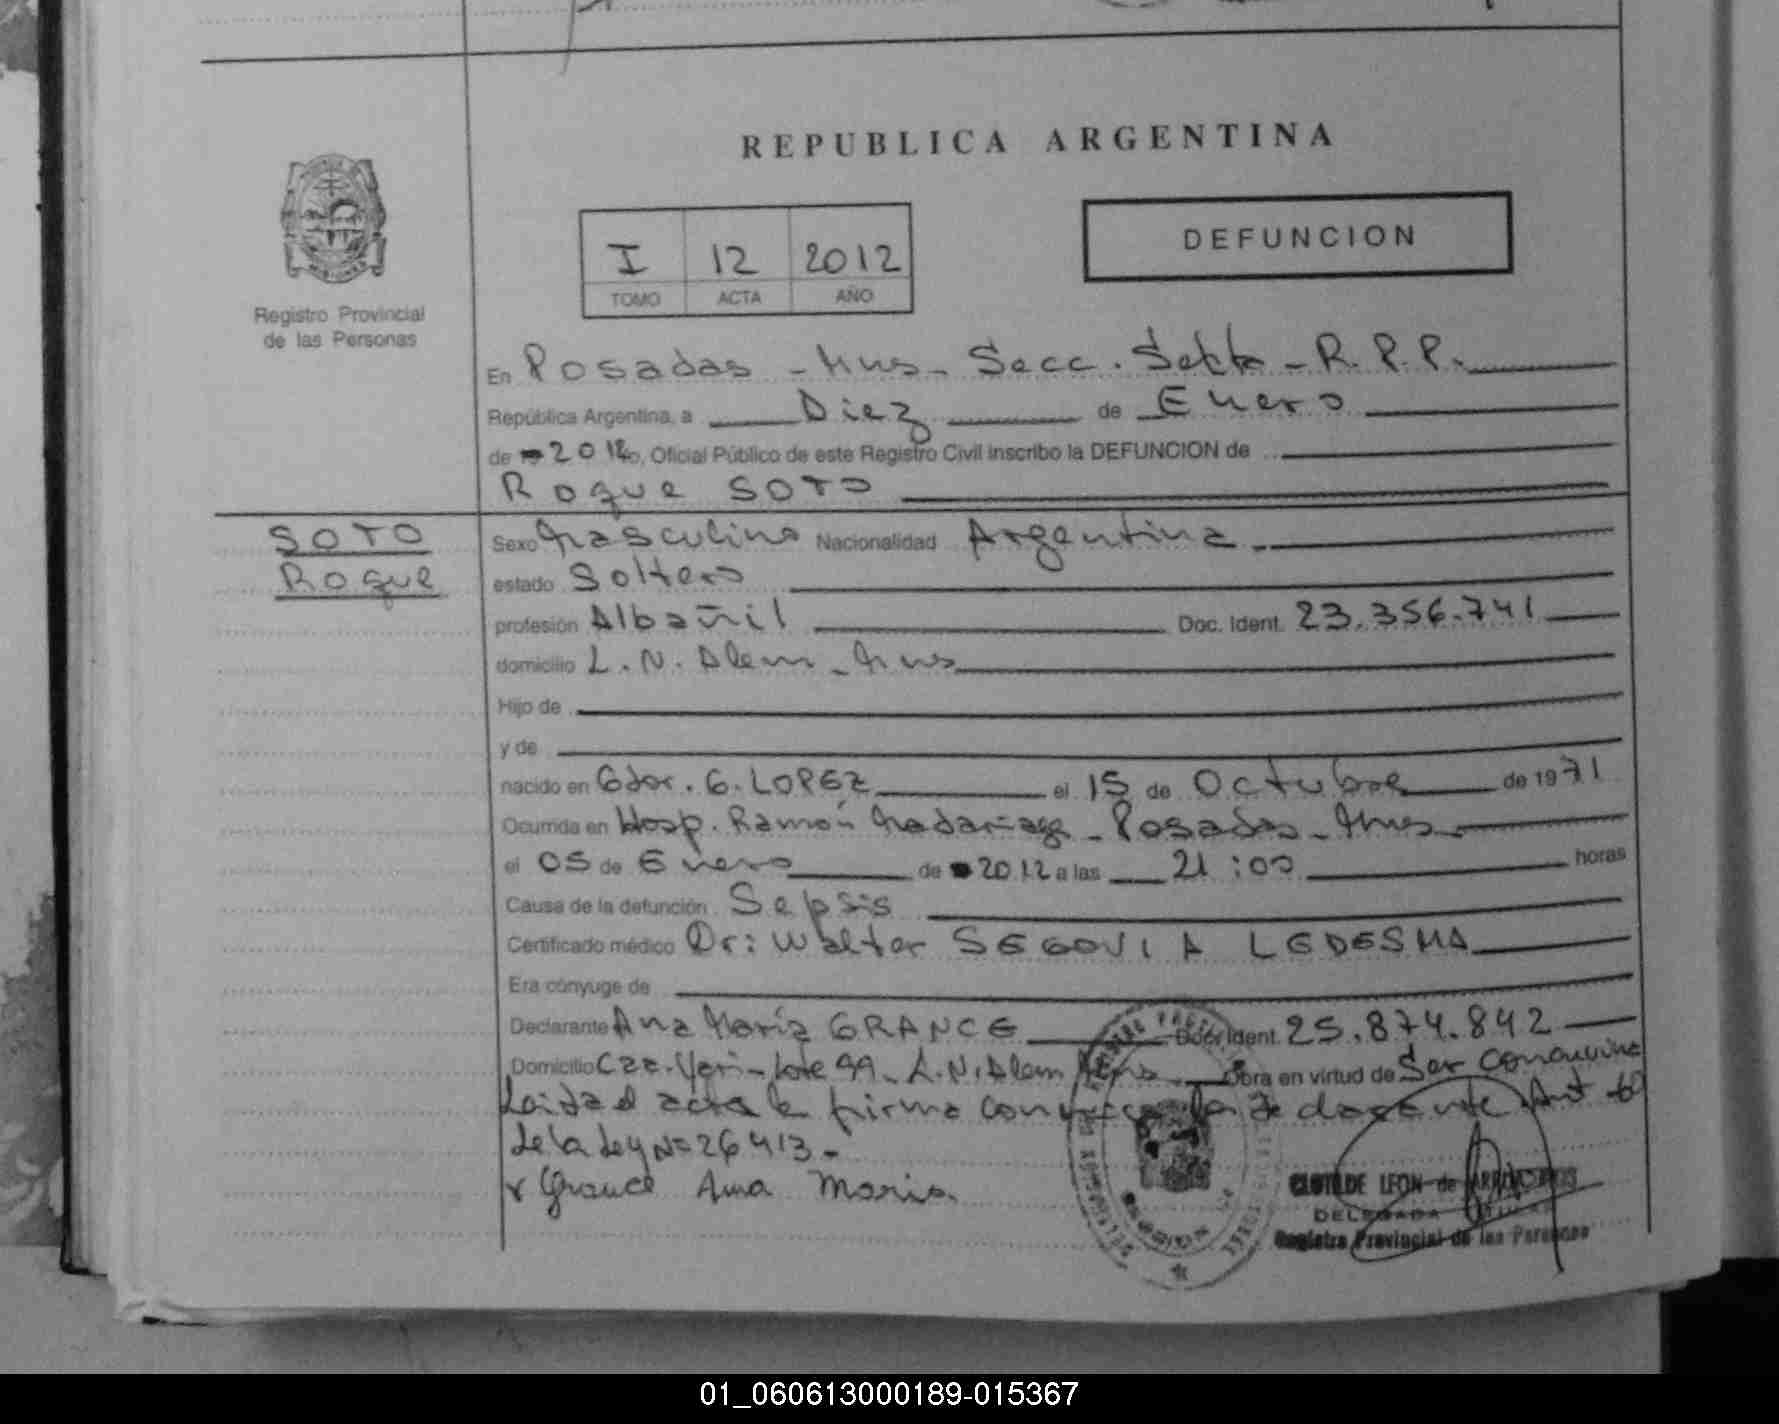 REPUBLICA ARGENTINA
I 12 2012
TOMO ACTA AÑO
DEFUNCION
Registro Provincial
de las Personas
En Posadas - Mns - Secc. Setta - R.P.P.
República Argentina, a Diez de Enero
de 2012, Oficial Público de este Registro Civil inscribo la DEFUNCION de
Roque SOTO
SOTO
Roque
Sexo Masculino Nacionalidad Argentina
estado Soltero
profesión Albañil Doc. Ident. 23.356.741
domicilio L.N. Alem - Mns
Hijo de
y de
nacido en Gdor. G. LOPEZ el 15 de Octubre de 1971
Ocurrida en Hosp. Ramón Madariaga - Posadas - Mns
el 05 de Enero de 2012 a las 21:00 horas
Causa de la defunción Sepsis
Certificado médico Dr: Walter SEGOVIA LEDESMA
Era cónyuge de
Declarante Ana María GRANCE Doc. Ident. 25.874.842
Domicilio Lote 99 - L.N. Alem Mns Obra en virtud de Ser concuvina
Leida el acta la firma conmigo la declarante Art 60
de la Ley Nº 26413.-
x Grance Ana Maria
CLOTILDE LEON de
DELEGADA
Registro Provincial de las Personas
01_060613000189-015367